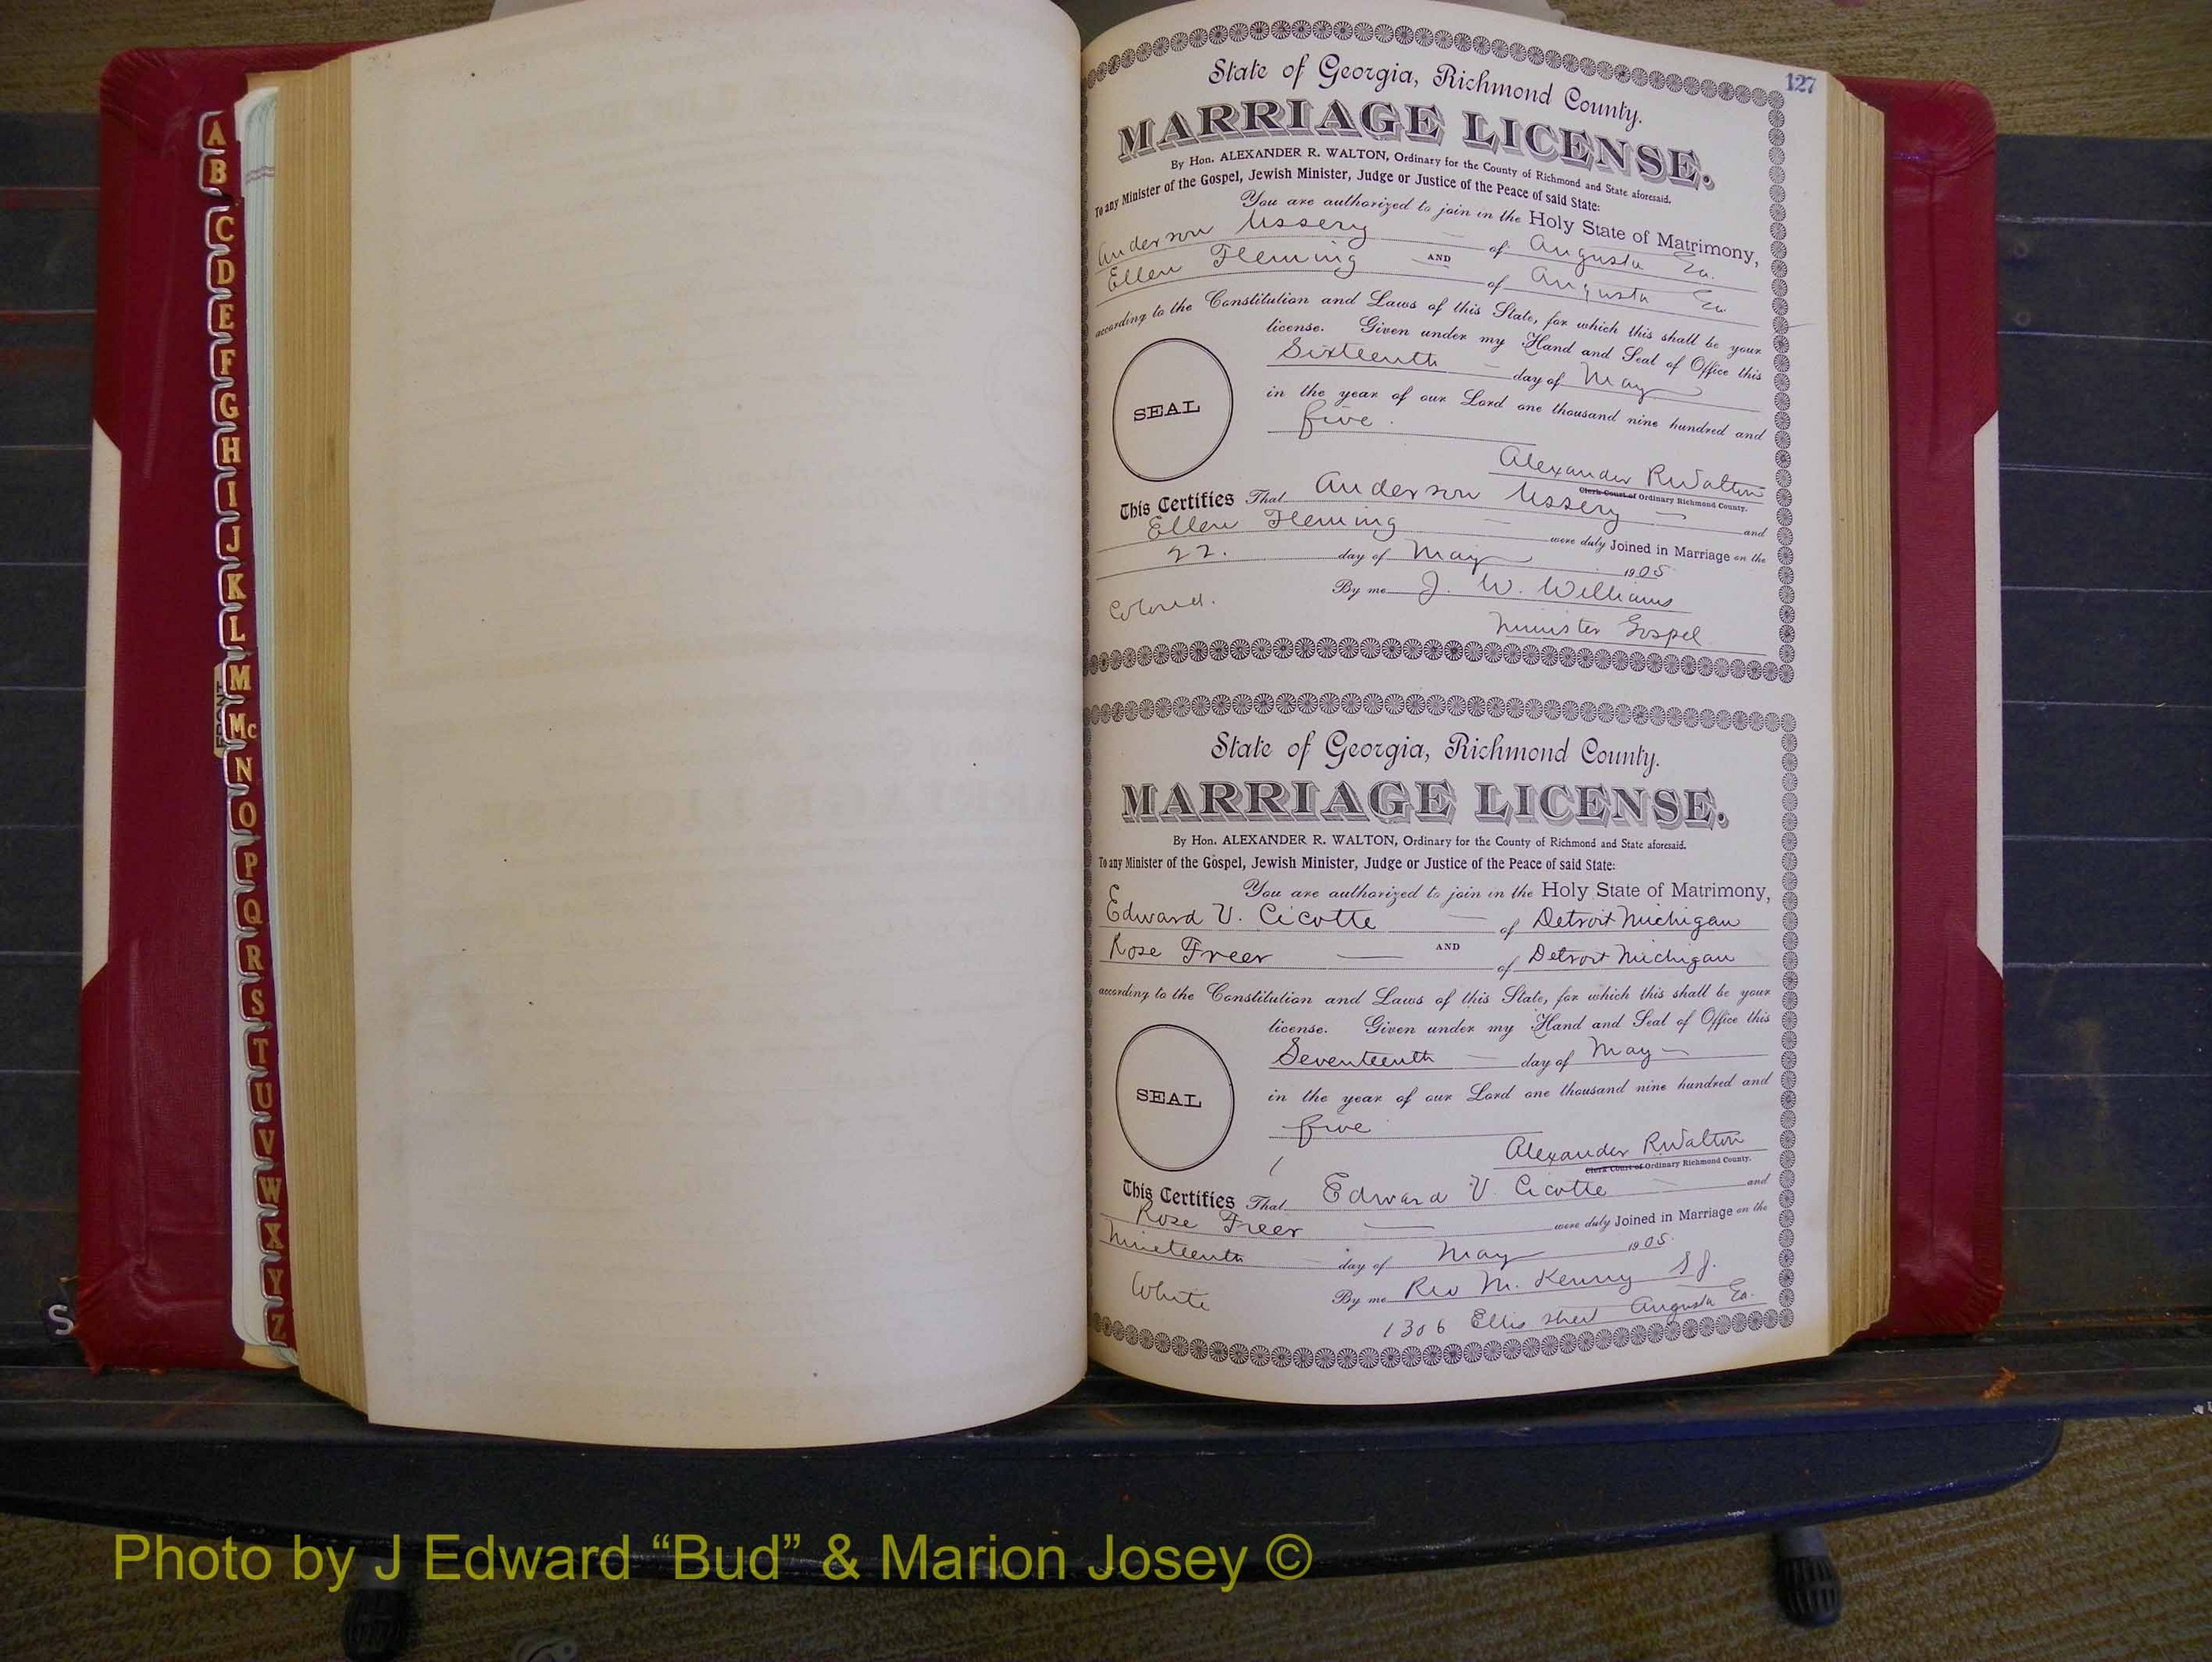 A
B
C
D
E
F
G
H
I
J
K
L
M
Mc
N
O
P
Q
R
S
T
U
V
W
X
Y
Z
S
127
State of Georgia, Richmond County.
MARRIAGE LICENSE.
By Hon. ALEXANDER R. WALTON, Ordinary for the County of Richmond and State aforesaid.
To any Minister of the Gospel, Jewish Minister, Judge or Justice of the Peace of said State:
You are authorized to join in the Holy State of Matrimony,
Anderson Ussery of Augusta Ga.
AND
Ellen Fleming of Augusta Ga
according to the Constitution and Laws of this State, for which this shall be your
license. Given under my Hand and Seal of Office this
Sixteenth day of May
SEAL
in the year of our Lord one thousand nine hundred and
five.
Alexander R Walton
Clerk Court of Ordinary Richmond County.
This Certifies That Anderson Ussery and
Ellen Fleming were duly Joined in Marriage on the
22. day of May 1905
Colored. By me J. W. Williams
Minister Gospel
State of Georgia, Richmond County.
MARRIAGE LICENSE.
By Hon. ALEXANDER R. WALTON, Ordinary for the County of Richmond and State aforesaid.
To any Minister of the Gospel, Jewish Minister, Judge or Justice of the Peace of said State:
You are authorized to join in the Holy State of Matrimony,
Edward V. Cicotte of Detroit Michigan
AND
Rose Freer of Detroit Michigan
according to the Constitution and Laws of this State, for which this shall be your
license. Given under my Hand and Seal of Office this
Seventeenth day of May
SEAL
in the year of our Lord one thousand nine hundred and
five
Alexander R Walton
Clerk Court of Ordinary Richmond County.
This Certifies That Edward V. Cicotte and
Rose Freer were duly Joined in Marriage on the
Nineteenth day of May 1905.
White By me Rev M. Kenny S J.
1306 Ellis Street Augusta Ga.
Photo by J Edward “Bud” & Marion Josey ©